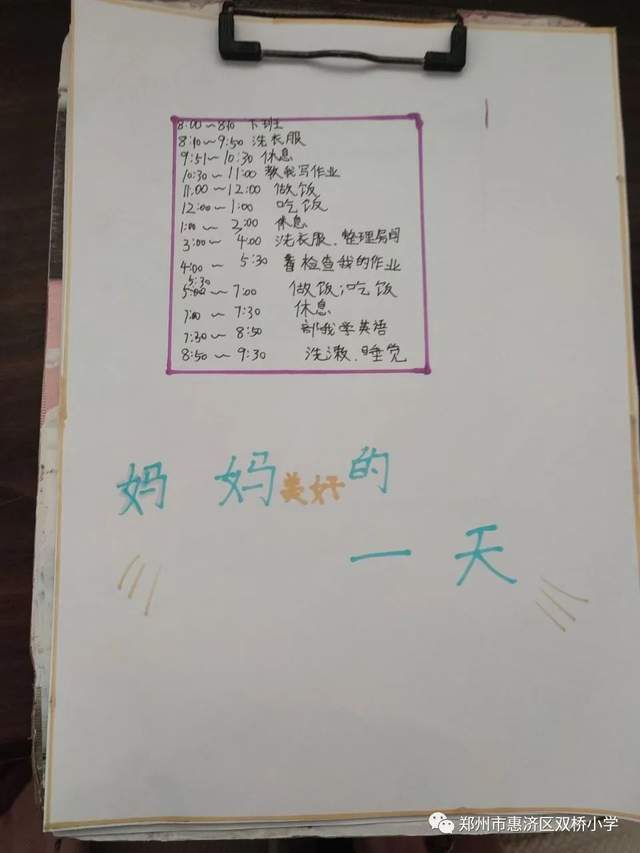 8:00～8:10 下班
8:10～9:50 洗衣服
9:51～10:30 休息
10:30～11:00 教我写作业
11:00～12:00 做饭
12:00～1:00 吃饭
1:00～2:00 休息
3:00～4:00 洗衣服、整理房间
4:00～5:30 看检查我的作业
5:30
5:00～7:00 做饭；吃饭
7:00～7:30 休息
7:30～8:50 我学英语
8:50～9:30 洗漱、睡觉
妈妈美好的
一天
郑州市惠济区双桥小学